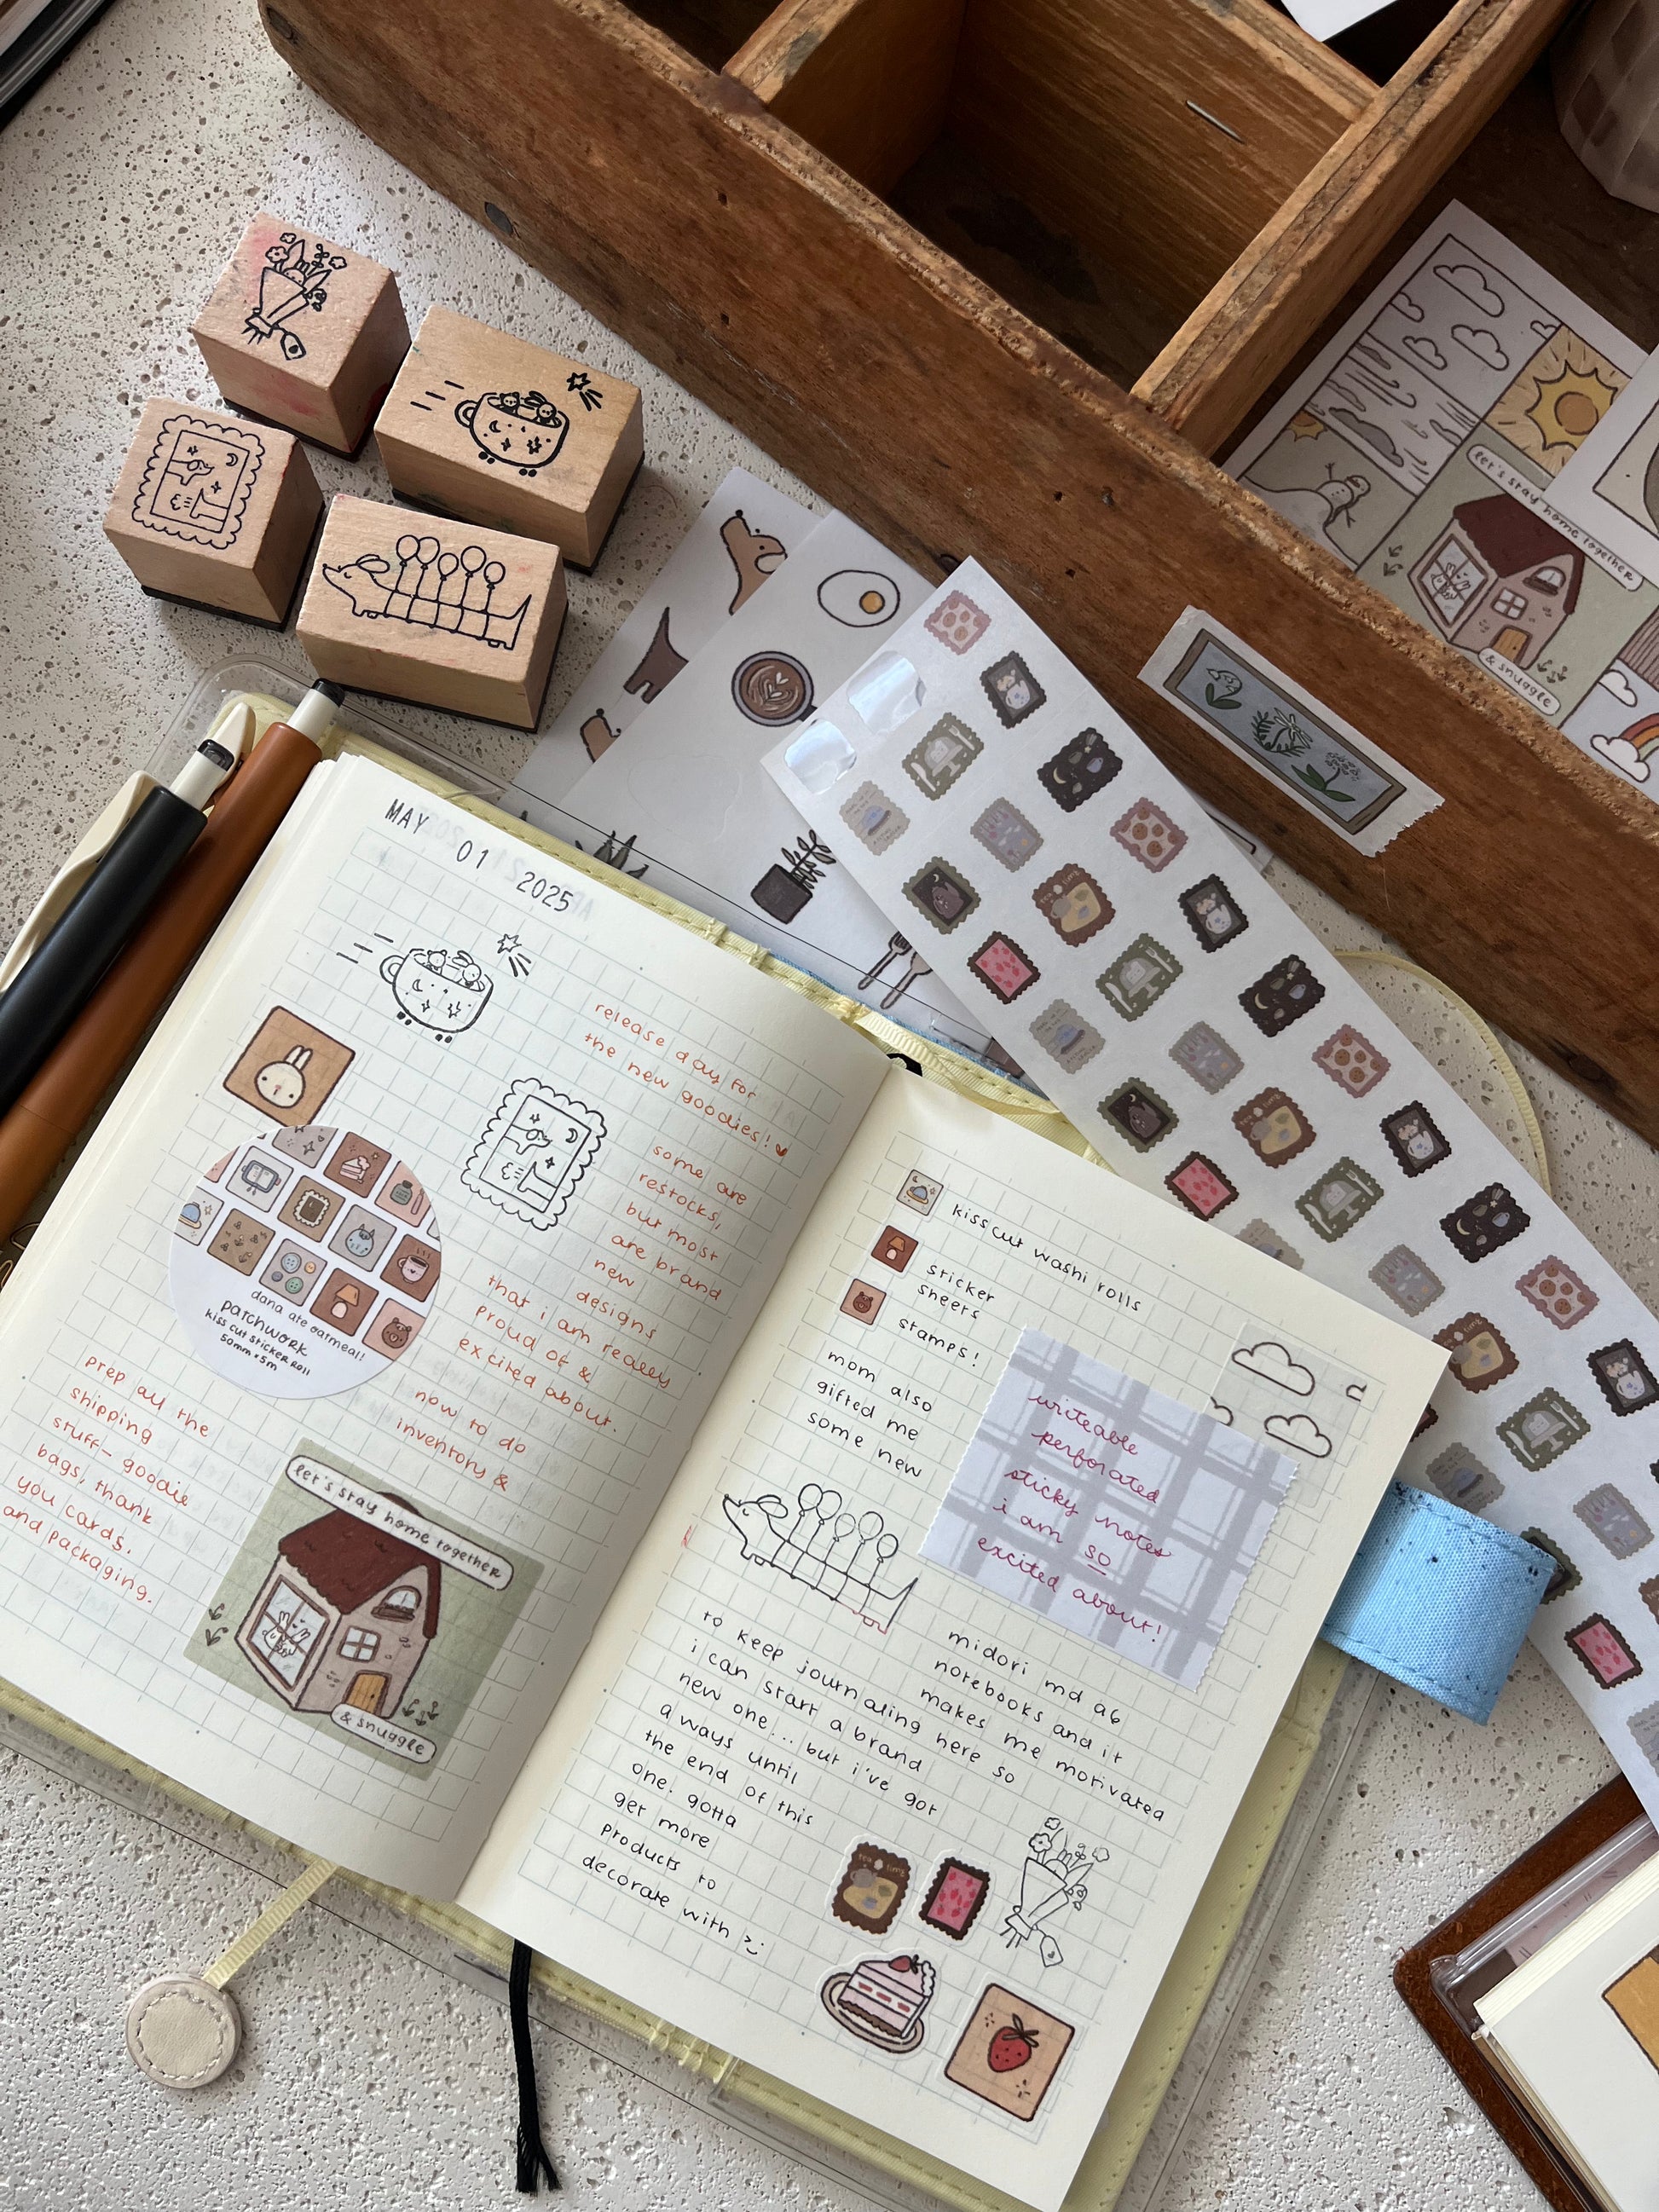 MAY
01
2025
release day for
the new goodies!
some are
restocks,
but most
are brand
new
designs
that i am really
proud of &
excited about.
now to do
inventory &
prep all the
shipping
stuff- goodie
bags, thank
you cards,
and packaging.
dana ate oatmeal!
patchwork
kiss cut sticker roll
50mm x 5m
let's stay home together
& snuggle
kisscut washi rolls
sticker
sheets
stamps!
mom also
gifted me
some new
writeable
perforated
sticky notes
i am so
excited about!
midori md a6
notebooks and it
makes me motivated
to keep journaling here so
i can start a brand
new one... but i've got
a ways until
the end of this
one. gotta
get more
products to
decorate with
tea time
let's stay home together
& snuggle
tea time
tea time
tea time